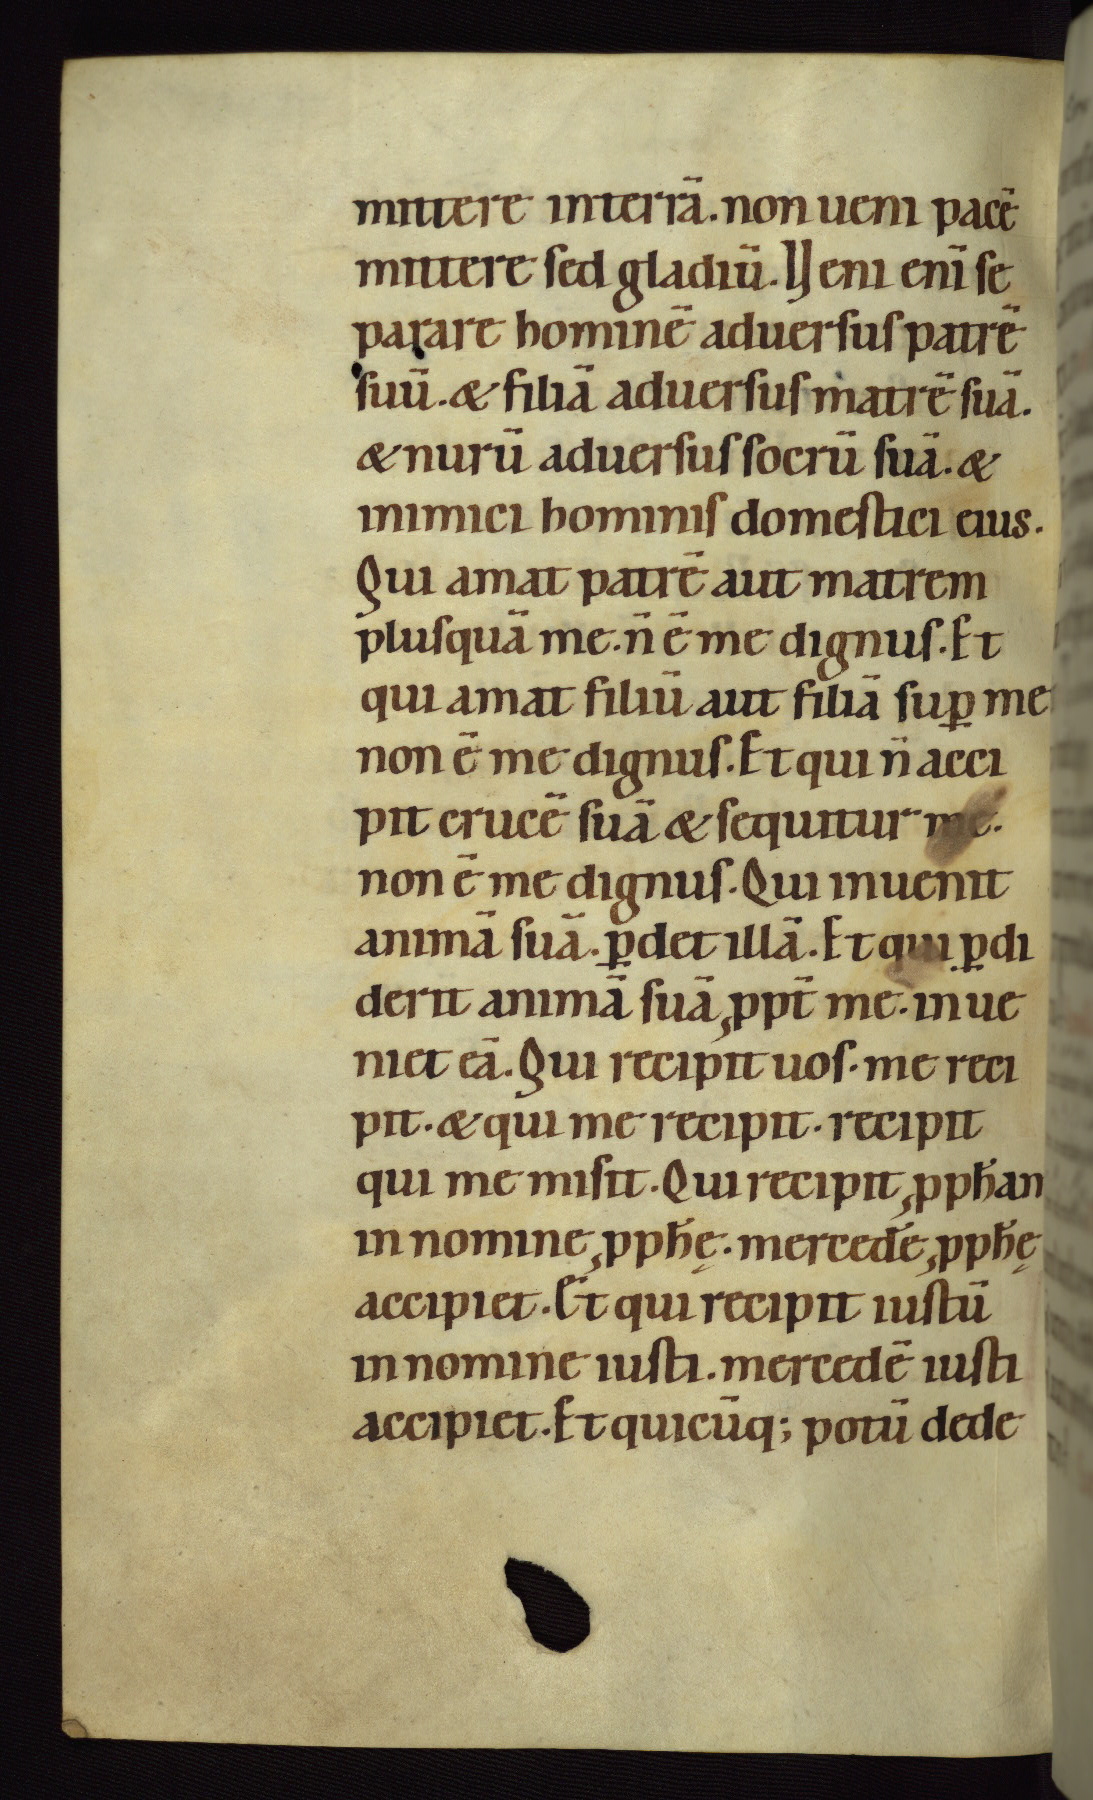 mittere interrā. non ueni pacē
mittere sed gladiū. Veni enī se
parare hominē aduersus patrē
suū. & filiā aduersus matrē suā.
& nurū aduersus socrū suā. &
inimici hominis domestici eius.
Qui amat patrē aut matrem
plusquā me. n̄ ē me dignus. Et
qui amat filiū aut filiā suꝑ me
non ē me dignus. Et qui n̄ acci
pit crucē suā & sequitur me.
non ē me dignus. Qui inuenit
animā suā. ꝑdet illā. Et qui ꝑdi
derit animā suā ꝓpt̄ me. inue
niet eā. Qui recipit uos. me reci
pit. & qui me recipit. recipit
qui me misit. Qui recipit ꝓph̄an
in nomine ꝓph̄ę. mercedē ꝓph̄ę
accipiet. Et qui recipit iustū
in nomine iusti. mercedē iusti
accipiet. Et quicūq; potū dede